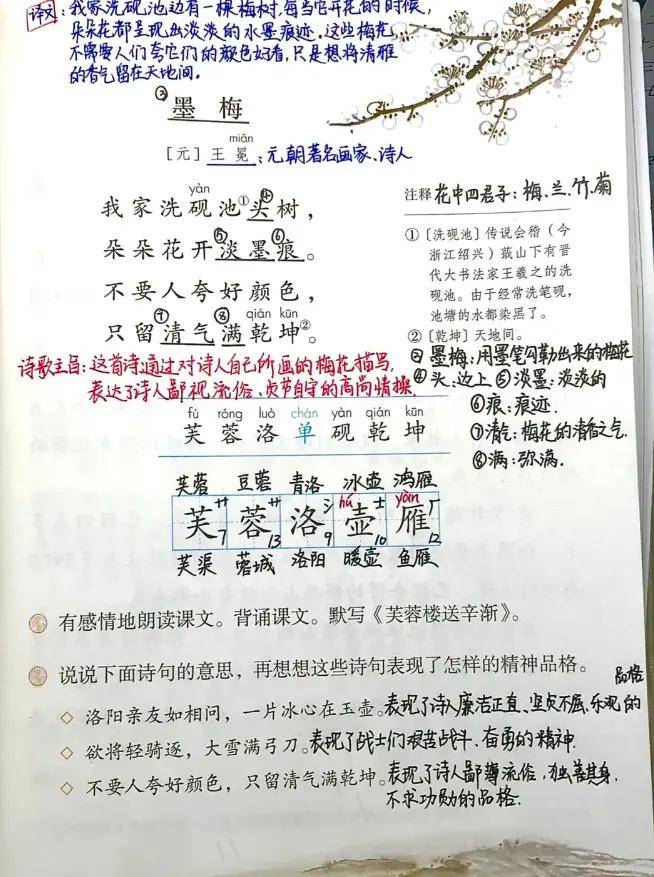 译文：我家洗砚池边有一棵梅树，每当它开花的时候，
朵朵花都呈现出淡淡的水墨痕迹。这些梅花
不需要人们夸它们的颜色好看，只是想将清雅
的香气留在天地间。
③
墨梅
miǎn
［元］王冕：元朝著名画家、诗人
yàn
我家洗砚池①头④树，
朵朵花开淡⑤墨痕⑥。
不要人夸好颜色，
⑦ ⑧ qián kūn
只留清气满乾坤②。
注释 花中四君子：梅、兰、竹、菊
①〔洗砚池〕传说会稽（今
浙江绍兴）蕺山下有晋
代大书法家王羲之的洗
砚池。由于经常洗笔砚，
池塘的水都染黑了。
②〔乾坤〕天地间。
③墨梅：用墨笔勾勒出来的梅花
④头：边上 ⑤淡墨：淡淡的
⑥痕：痕迹.
⑦清气：梅花的清香之气.
⑧满：弥满.
诗歌主旨：这首诗通过对诗人自己所画的梅花描写，
表达了诗人鄙视流俗、贞节自守的高尚情操.
fú róng luò chán yàn qián kūn
芙蓉洛单砚乾坤
芙蓉 豆蓉 青洛 冰壶 鸿雁
hú yàn
芙 艹 7 蓉 艹 13 洛 氵 9 壶 士 10 雁 厂 12
芙渠 蓉城 洛阳 暖壶 鱼雁
有感情地朗读课文。背诵课文。默写《芙蓉楼送辛渐》。
说说下面诗句的意思，再想想这些诗句表现了怎样的精神品格。
◇ 洛阳亲友如相问，一片冰心在玉壶。表现了诗人廉洁正直、坚贞不屈、乐观的品格
◇ 欲将轻骑逐，大雪满弓刀。表现了战士们艰苦战斗、奋勇的精神.
◇ 不要人夸好颜色，只留清气满乾坤。表现了诗人鄙薄流俗，独善其身，
不求功勋的品格.